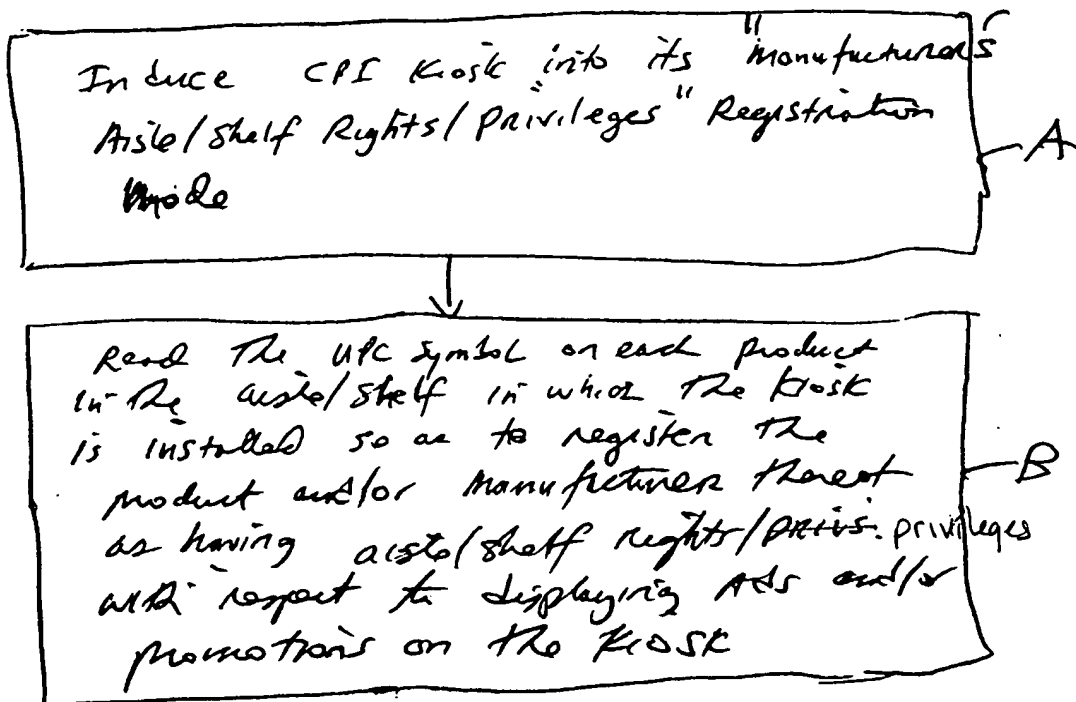 Induce CPI Kiosk into its "manufacturers'
Aisle/Shelf Rights/Privileges" Registration
mode
A
Read the UPC symbol on each product
in the aisle/shelf in which the kiosk
is installed so as to register the
product and/or manufacturer thereof
as having aisle/shelf rights/privs. privileges
with respect to displaying Ads and/or
promotions on the kiosk
B